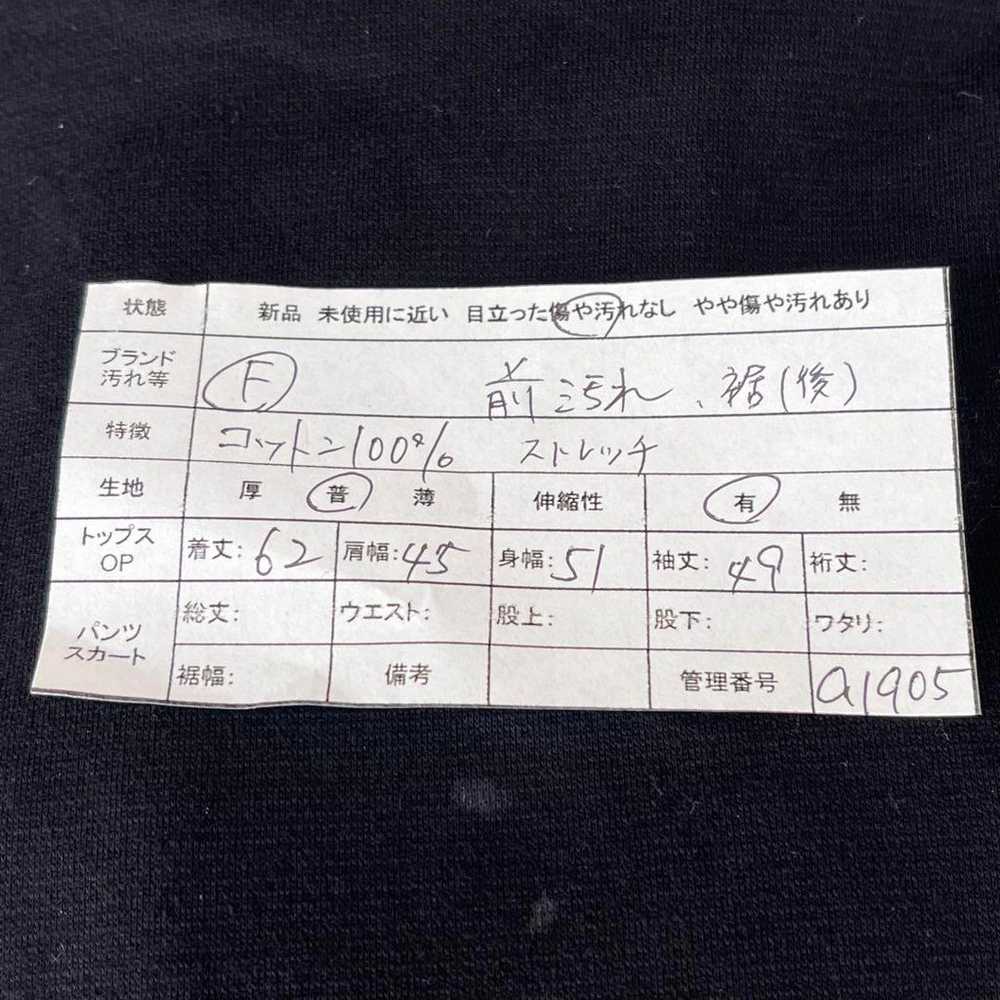 状態 新品 未使用に近い 目立った傷や汚れなし やや傷や汚れあり
ブランド
汚れ等 F 前汚れ、裾(後)
特徴 コットン100% ストレッチ
生地 厚 普 薄 伸縮性 有 無
トップス
OP 着丈:62 肩幅:45 身幅:51 袖丈:49 裄丈:
パンツ
スカート 総丈: ウエスト: 股上: 股下: ワタリ:
裾幅: 備考 管理番号 a1905